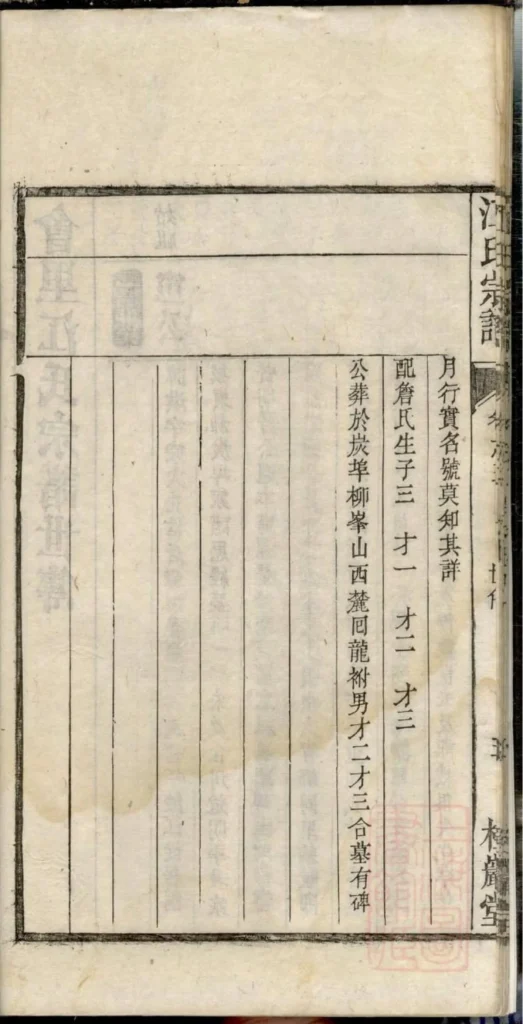 江氏宗譜
世傳
堂
月行實名號莫知其詳
配詹氏生子三　才一　才二　才三
公葬於炭埠柳峯山西麓囘龍祔男才二才三合墓有碑